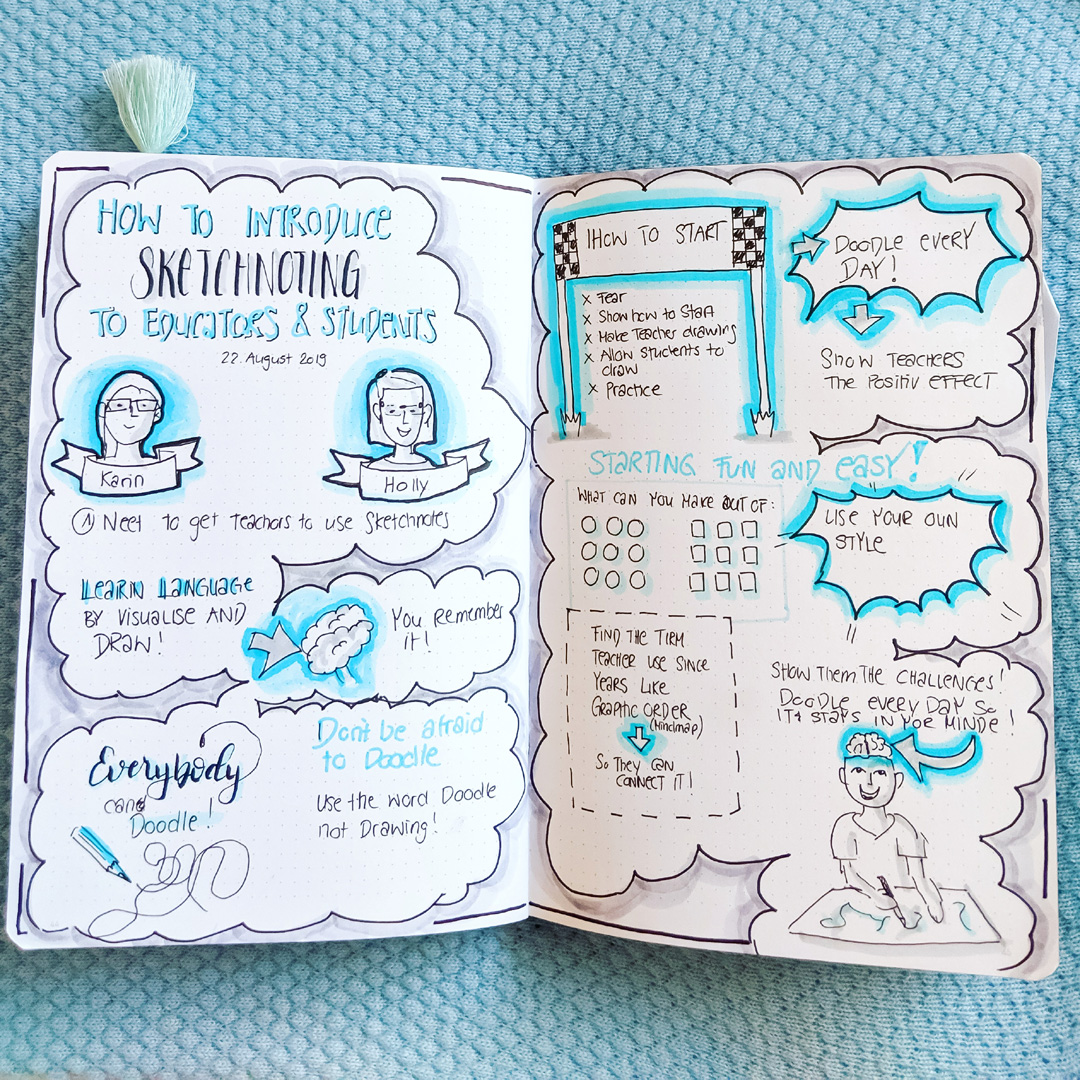 HOW TO INTRODUCE
SKETCHNOTING
TO EDUCATORS & STUDENTS
22. August 2019
Karin
Holly
① Neet to get Teachers to use Sketchnotes
LEARN LANGUAGE
BY VISUALISE AND
DRAW!
You Remember
it!
Everybody
can
Doodle!
Don't be afraid
to Doodle
Use the word Doodle
not Drawing!
HOW TO START
x Fear
x Show how to Start
x Make Teacher drawing
x Allow Students to
draw
x Practice
DOODLE EVERY
DAY!
SHOW TEACHERS
THE POSITIV EFFECT
STARTING FUN AND easy!
WHAT CAN YOU MAKE OUT OF:
USE YOUR OWN
STYLE
FIND THE TIRM
TEACHER USE SINCE
YEARS LIKE
GRAPHIC ORDER
(Mindmap)
SO THEY CAN
CONNECT IT!
SHOW THEM THE CHALLENGES!
DOODLE EVERY DAY SO
IT STAYS IN YOR MINDE!